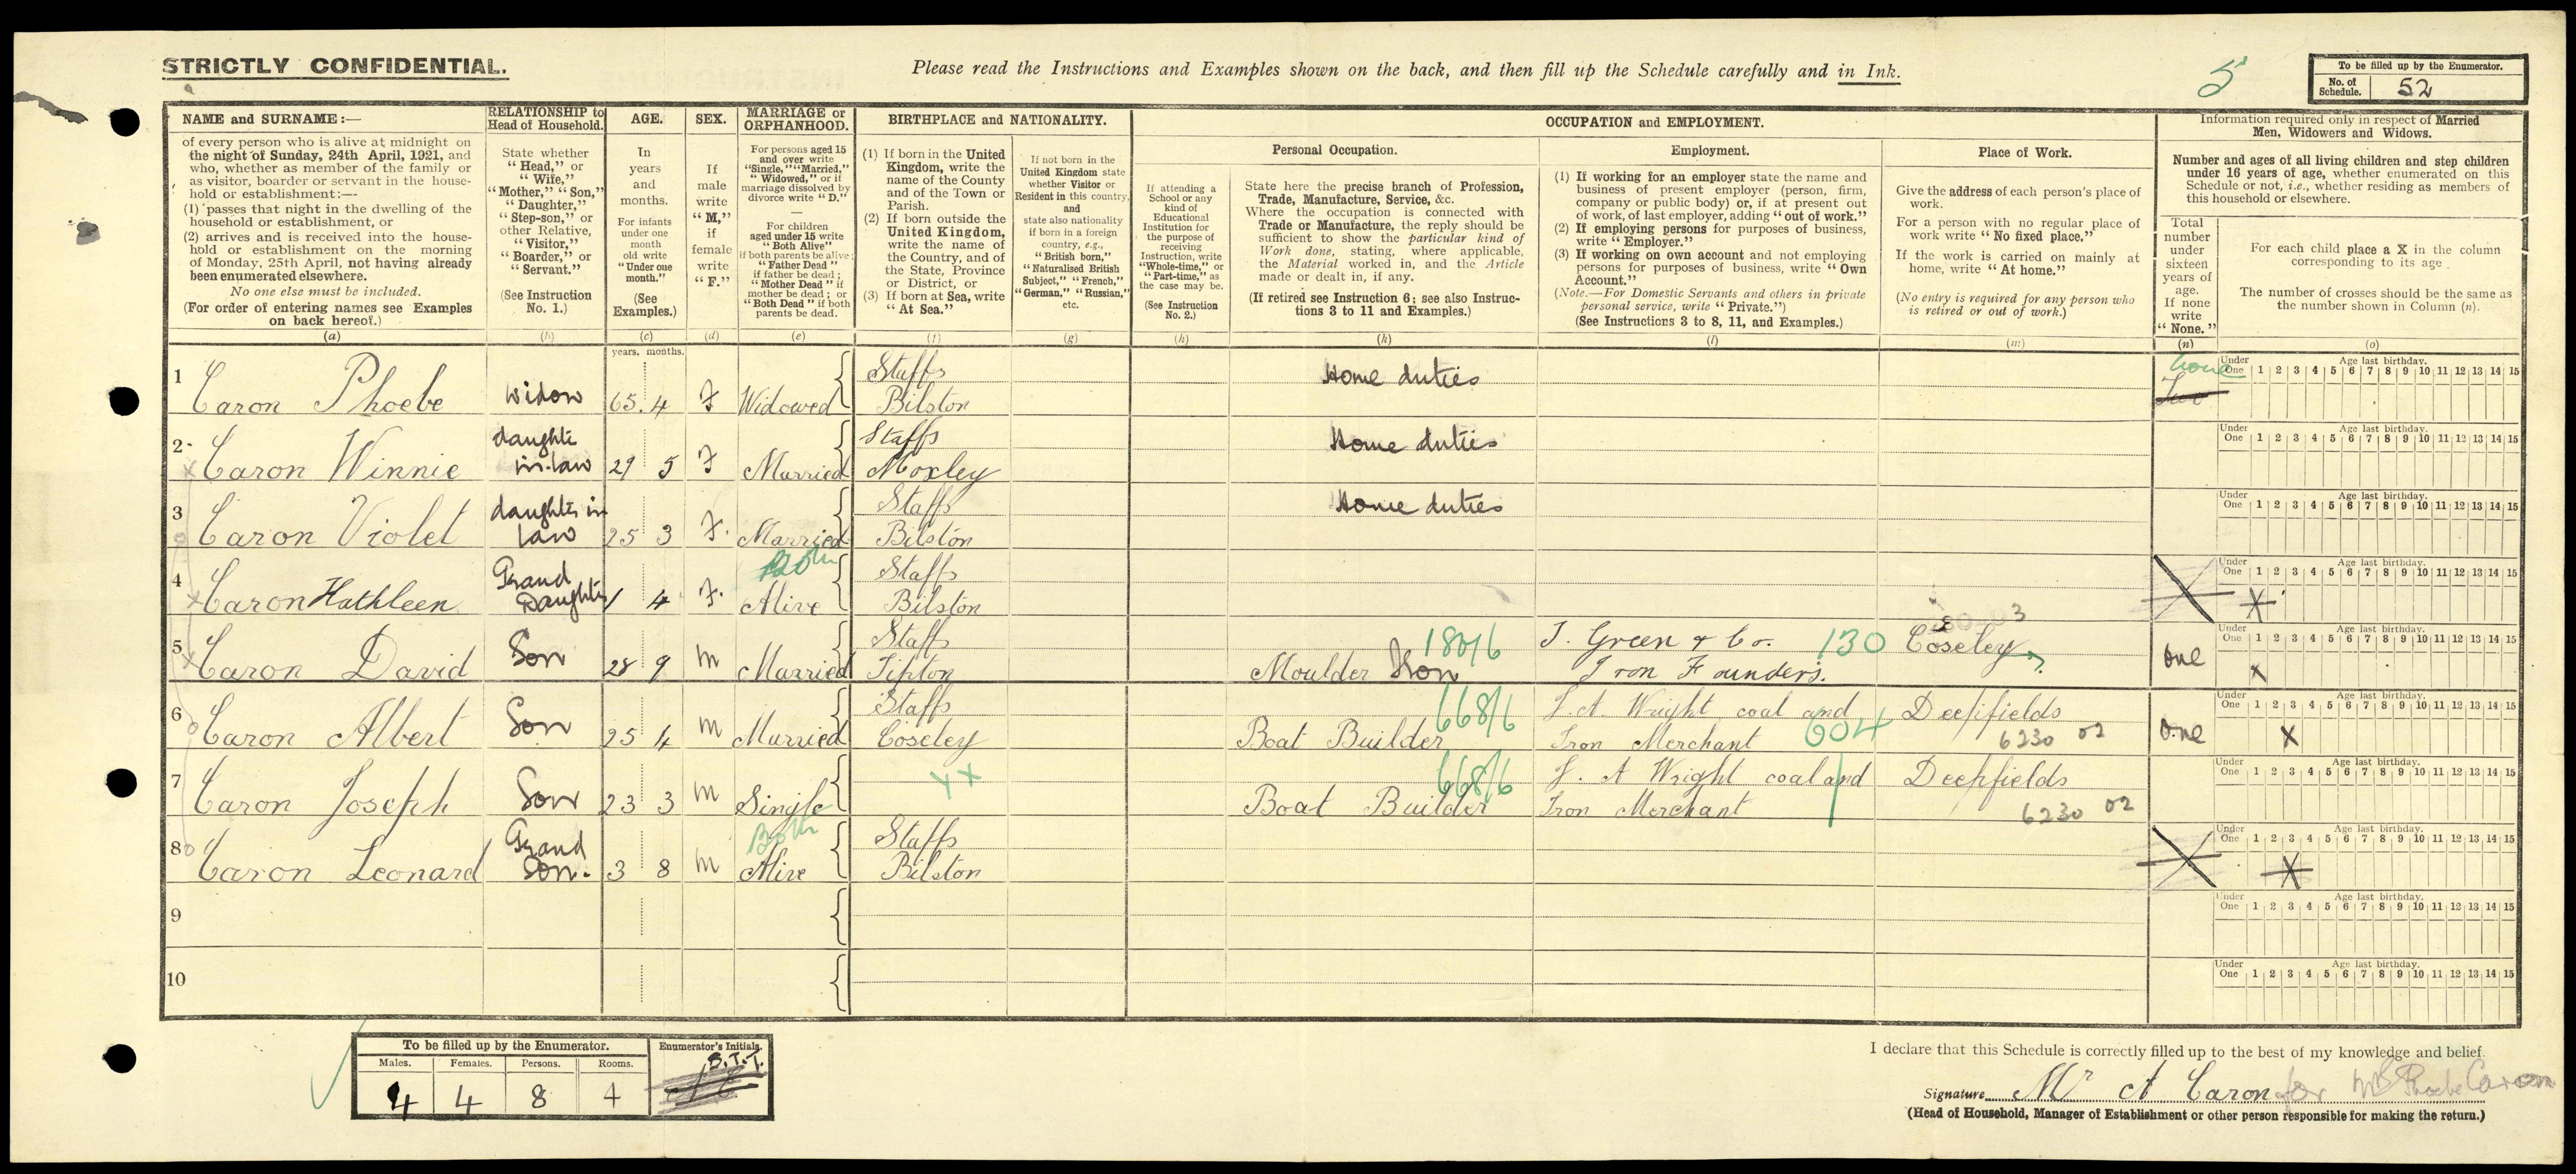 STRICTLY CONFIDENTIAL.
Please read the Instructions and Examples shown on the back, and then fill up the Schedule carefully and in Ink.
5
To be filled up by the Enumerator.
No. of Schedule. 52
NAME and SURNAME:—
of every person who is alive at midnight on
the night of Sunday, 24th April, 1921, and
who, whether as member of the family or
as visitor, boarder or servant in the house-
hold or establishment:—
(1) passes that night in the dwelling of the
household or establishment, or
(2) arrives and is received into the house-
hold or establishment on the morning
of Monday, 25th April, not having already
been enumerated elsewhere.
No one else must be included.
(For order of entering names see Examples
on back hereof.)
(a)
RELATIONSHIP to
Head of Household.
State whether
"Head," or
"Wife,"
"Mother," "Son,"
"Daughter,"
"Step-son," or
other Relative,
"Visitor,"
"Boarder," or
"Servant."
(See Instruction
No. 1.)
(b)
AGE.
In
years
and
months.
For infants
under one
month
old write
"Under one
month."
(See
Examples.)
(c)
years. months.
SEX.
If
male
write
"M,"
if
female
write
"F."
(d)
MARRIAGE or
ORPHANHOOD.
For persons aged 15
and over write
"Single," "Married,"
"Widowed," or if
marriage dissolved by
divorce write "D."
—
For children
aged under 15 write
"Both Alive"
if both parents be alive;
"Father Dead"
if father be dead;
"Mother Dead" if
mother be dead; or
"Both Dead" if both
parents be dead.
(e)
BIRTHPLACE and NATIONALITY.
(1) If born in the United
Kingdom, write the
name of the County
and of the Town or
Parish.
(2) If born outside the
United Kingdom,
write the name of
the Country, and of
the State, Province
or District, or
(3) If born at Sea, write
"At Sea."
(f)
If not born in the
United Kingdom state
whether Visitor or
Resident in this country,
and
state also nationality
if born in a foreign
country, e.g.,
"British born,"
"Naturalised British
Subject," "French,"
"German," "Russian,"
etc.
(g)
OCCUPATION and EMPLOYMENT.
If attending a
School or any
kind of
Educational
Institution for
the purpose of
receiving
Instruction, write
"Whole-time," or
"Part-time," as
the case may be.
(See Instruction
No. 2.)
(h)
Personal Occupation.
State here the precise branch of Profession,
Trade, Manufacture, Service, &c.
Where the occupation is connected with
Trade or Manufacture, the reply should be
sufficient to show the particular kind of
Work done, stating, where applicable,
the Material worked in, and the Article
made or dealt in, if any.
(If retired see Instruction 6; see also Instruc-
tions 3 to 11 and Examples.)
(k)
Employment.
(1) If working for an employer state the name and
business of present employer (person, firm,
company or public body) or, if at present out
of work, of last employer, adding "out of work."
(2) If employing persons for purposes of business,
write "Employer."
(3) If working on own account and not employing
persons for purposes of business, write "Own
Account."
(Note.—For Domestic Servants and others in private
personal service, write "Private.")
(See Instructions 3 to 8, 11, and Examples.)
(l)
Place of Work.
Give the address of each person's place of
work.
For a person with no regular place of
work write "No fixed place."
If the work is carried on mainly at
home, write "At home."
(No entry is required for any person who
is retired or out of work.)
(m)
Information required only in respect of Married
Men, Widowers and Widows.
Number and ages of all living children and step children
under 16 years of age, whether enumerated on this
Schedule or not, i.e., whether residing as members of
this household or elsewhere.
Total
number
under
sixteen
years of
age.
If none
write
"None."
(n)
For each child place a X in the column
corresponding to its age.
The number of crosses should be the same as
the number shown in Column (n).
(o)
1 Caron Phoebe Widow 65.4 F Widowed Staffs Bilston Home duties none Two
Under One Age last birthday. 1 2 3 4 5 6 7 8 9 10 11 12 13 14 15
2 Caron Winnie daughter in-law 29 5 F Married Staffs Moxley Home duties
Under One Age last birthday. 1 2 3 4 5 6 7 8 9 10 11 12 13 14 15
3 Caron Violet daughter in law 25 3 F. Married Staffs Bilston Home duties
Under One Age last birthday. 1 2 3 4 5 6 7 8 9 10 11 12 13 14 15
4 Caron Kathleen Grand Daughter 1 4 F. Both Alive Staffs Bilston
Under One Age last birthday. 1 2 3 4 5 6 7 8 9 10 11 12 13 14 15
X
5 Caron David Son 28 9 M Married Staffs Tipton Moulder Iron 180/6 T. Green & Co. Iron Founders. 130 Coseley One
Under One Age last birthday. 1 2 3 4 5 6 7 8 9 10 11 12 13 14 15
X
6 Caron Albert Son 25 4 M Married Staffs Coseley Boat Builder 668/6 T. A. Wright coal and Iron Merchant 604 Deepfields 6230 02 One
Under One Age last birthday. 1 2 3 4 5 6 7 8 9 10 11 12 13 14 15
X
7 Caron Joseph Son 23 3 M Single YX Boat Builder 668/6 T. A Wright coal and Iron Merchant Deepfields 6230 02
Under One Age last birthday. 1 2 3 4 5 6 7 8 9 10 11 12 13 14 15
8 Caron Leonard Grand Son. 3 8 M Both Alive Staffs Bilston
Under One Age last birthday. 1 2 3 4 5 6 7 8 9 10 11 12 13 14 15
X
9
Under One Age last birthday. 1 2 3 4 5 6 7 8 9 10 11 12 13 14 15
10
Under One Age last birthday. 1 2 3 4 5 6 7 8 9 10 11 12 13 14 15
To be filled up by the Enumerator.
Males. Females. Persons. Rooms.
4 4 8 4
Enumerator's Initials.
S.T.T.
I declare that this Schedule is correctly filled up to the best of my knowledge and belief.
Signature Mr A Caron for Mrs Phoebe Caron
(Head of Household, Manager of Establishment or other person responsible for making the return.)